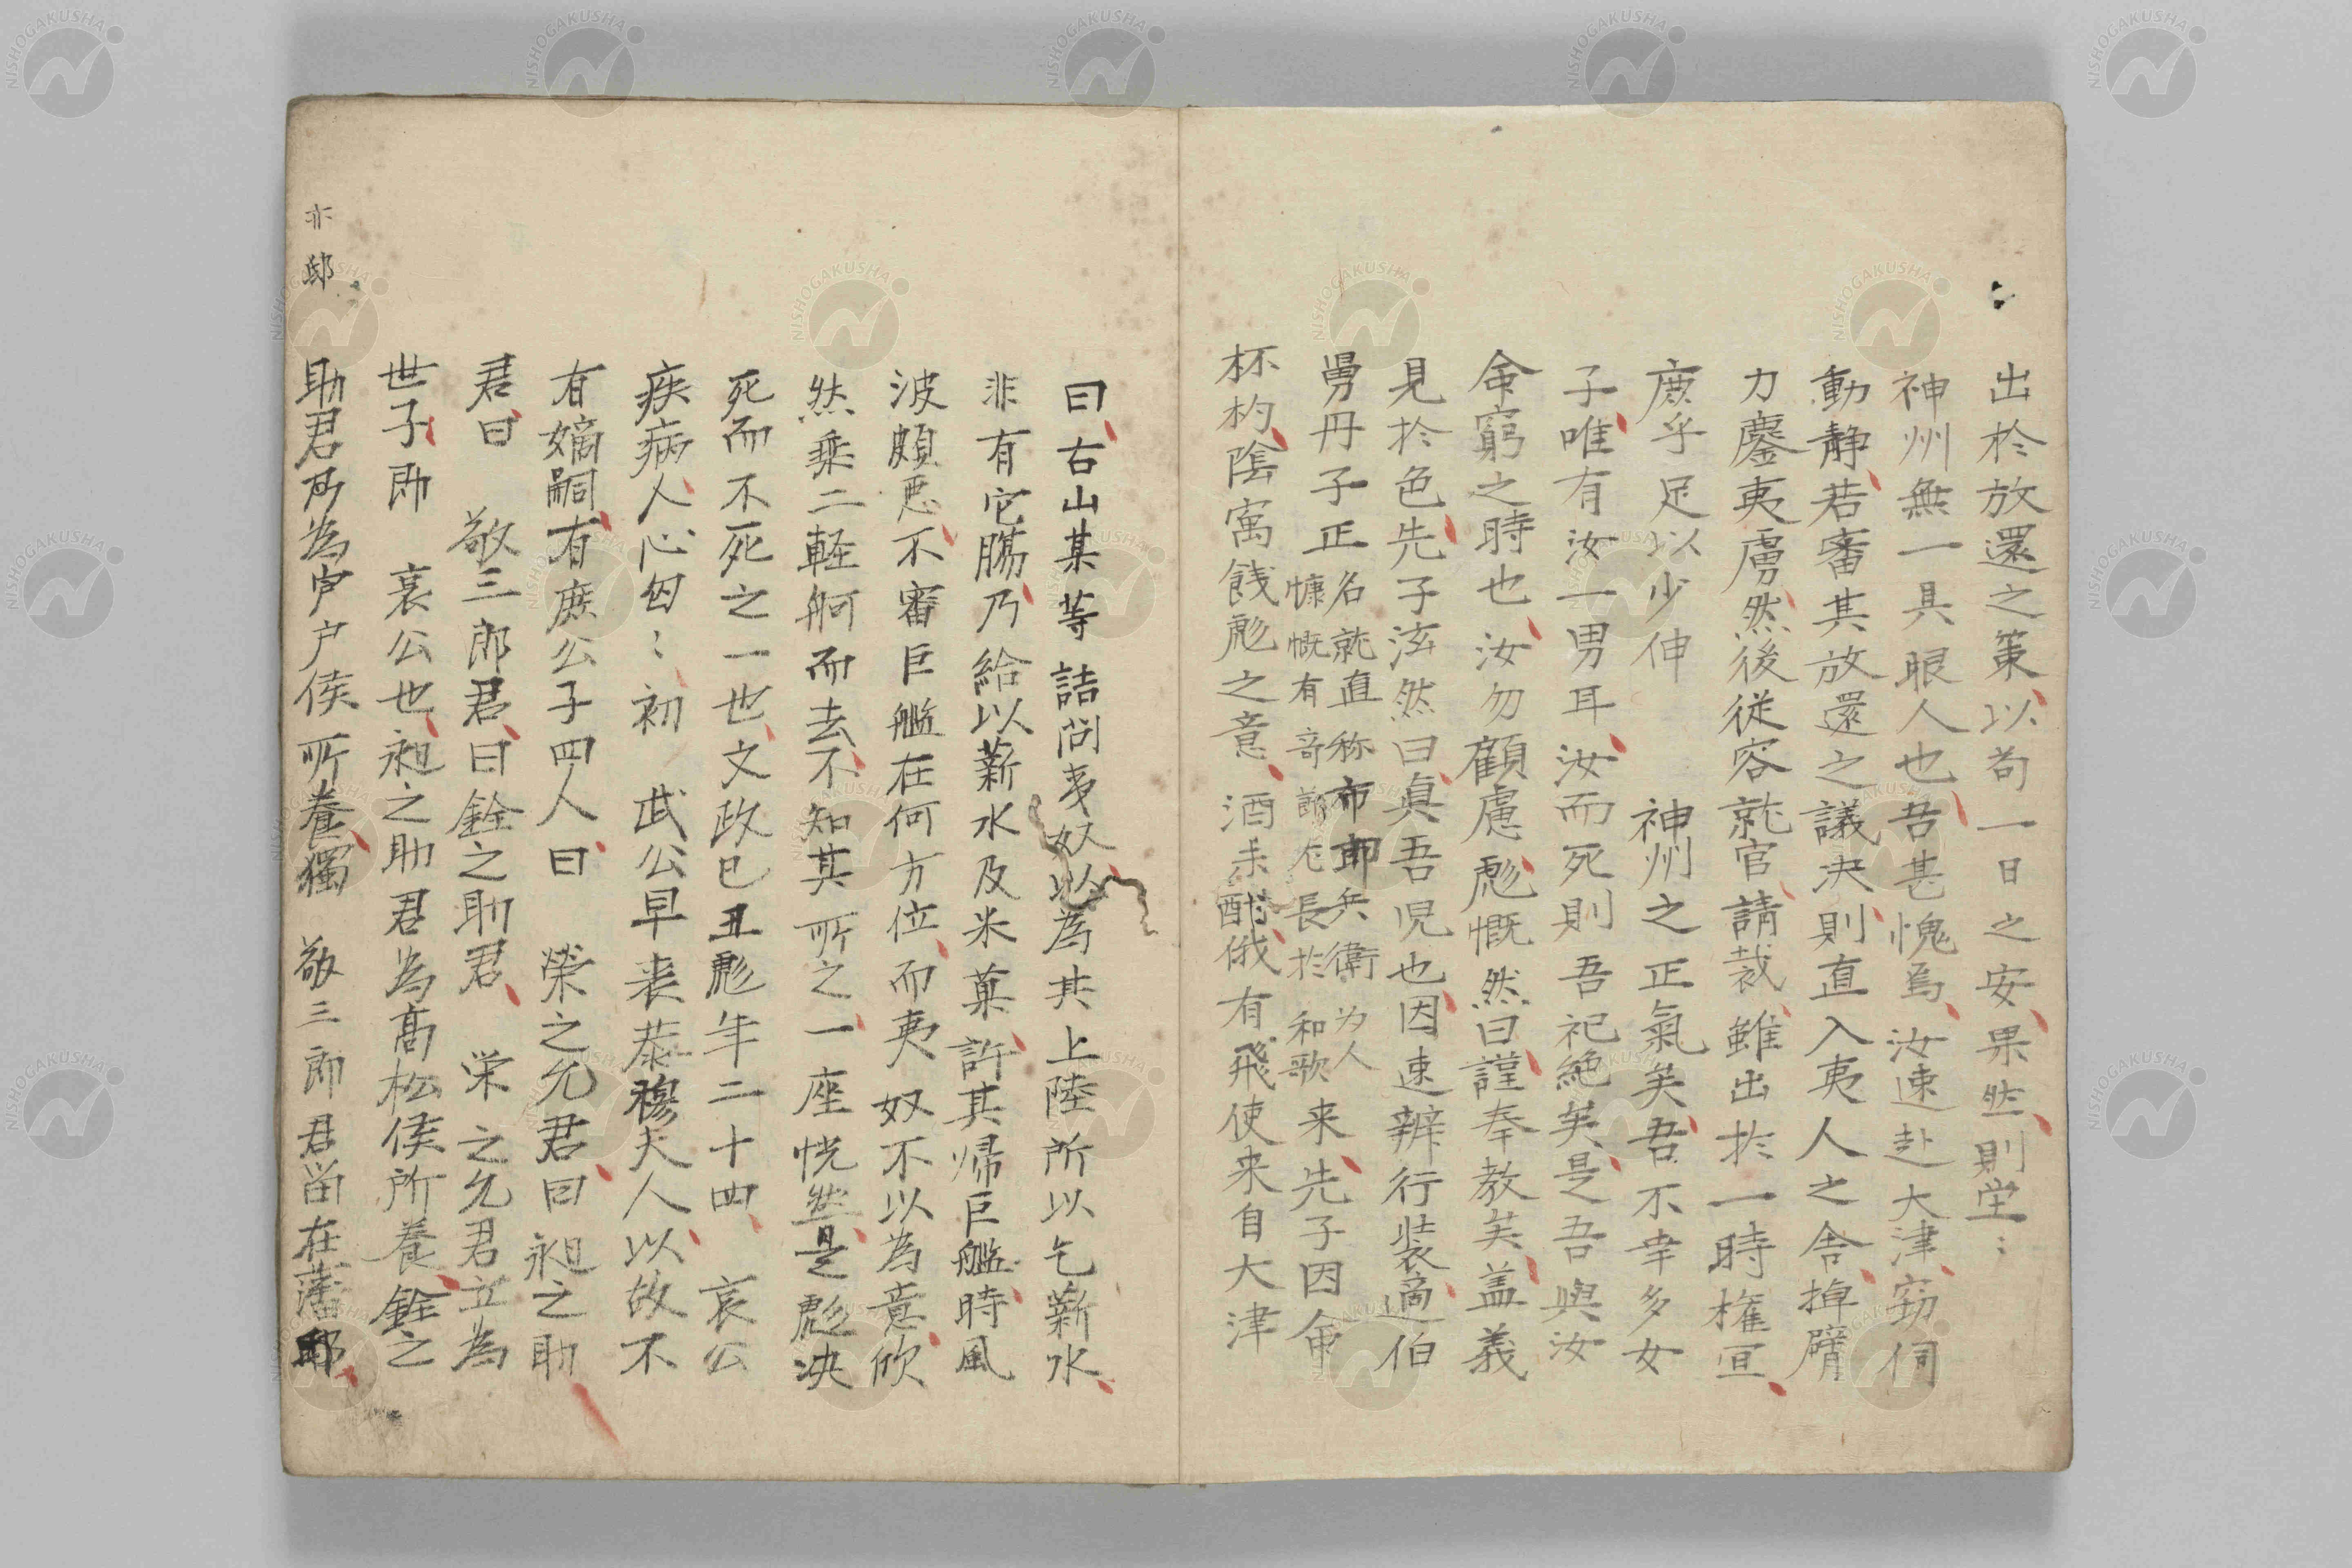 出於放還之策以苟一日之安果然則堂〻
神州無一具眼人也吾甚愧焉汝速赴大津窃伺
動静若審其放還之議决則直入夷人之舎掉臂
力鏖夷虜然後従容就官請裁雖出於一時権宜
庶乎足以少伸　神州之正氣矣吾不幸多女
子唯有汝一男耳汝而死則吾祀絶矣是吾與汝
命窮之時也汝勿顧慮彪慨然曰謹奉教矣盖義
見於色先子泫然曰眞吾児也因速辧行装適伯
舅丹子正名就直称市郎兵衛为人慷慨有竒節尤長於和歌来先子因命
杯杓隂寓餞彪之意酒未酣俄有飛使来自大津
曰右山某等詰問夷奴以為其上陸所以乞薪水
非有它膓乃給以薪水及米菓許其帰巨艦時風
波頗悪不審巨艦在何方位而夷奴不以為意欣
然乗二軽舸而去不知其所之一座恍然是彪决
死而不死之一也文政己丑彪年二十四　哀公
疾病人心匈〻初　武公早丧恭穆夫人以故不
有嫡嗣有庶公子四人曰　榮之允君曰昶之助
君曰　敬三郎君曰銓之助君　栄之允君立為
世子即　哀公也昶之助君為髙松侯所養銓之
助君所為宍户侯所養獨　敬三郎君留在藩邸
亦邸
NISHOGAKUSHA